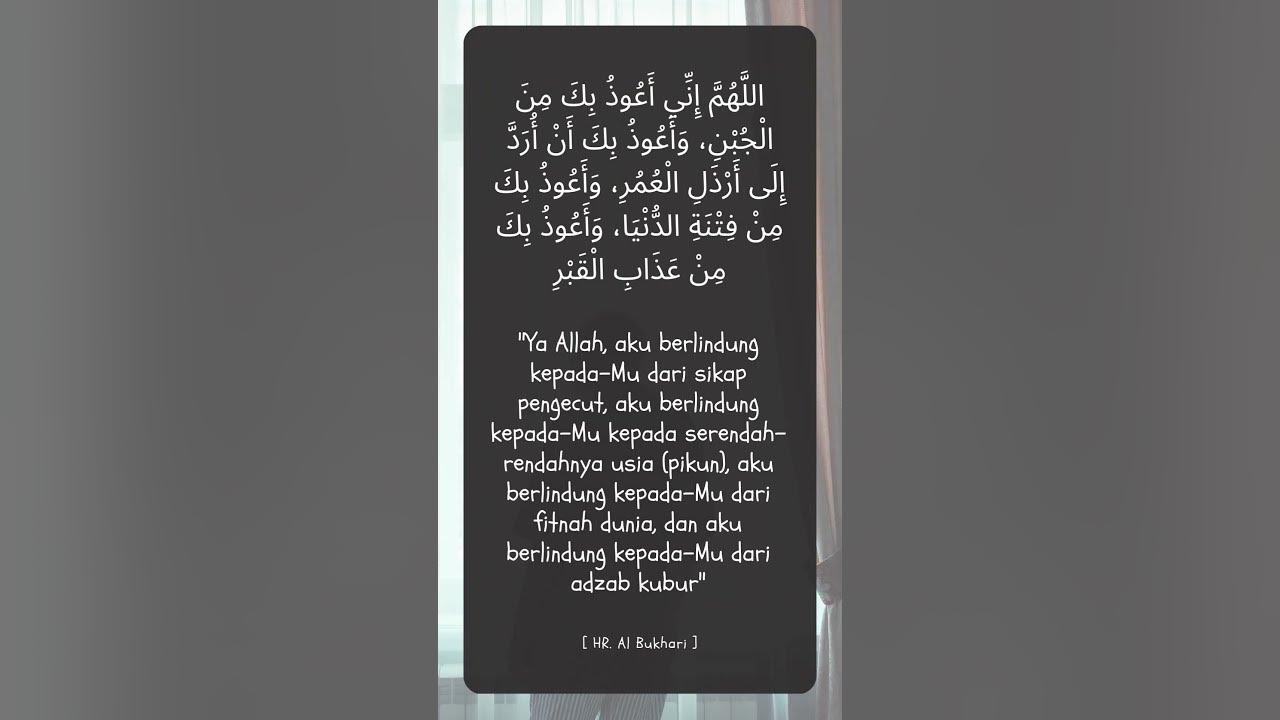 اللَّهُمَّ إِنِّي أَعُوذُ بِكَ مِنَ
الْجُبْنِ، وَأَعُوذُ بِكَ أَنْ أُرَدَّ
إِلَى أَرْذَلِ الْعُمُرِ، وَأَعُوذُ بِكَ
مِنْ فِتْنَةِ الدُّنْيَا، وَأَعُوذُ بِكَ
مِنْ عَذَابِ الْقَبْرِ
"Ya Allah, aku berlindung
kepada-Mu dari sikap
pengecut, aku berlindung
kepada-Mu kepada serendah-
rendahnya usia (pikun), aku
berlindung kepada-Mu dari
fitnah dunia, dan aku
berlindung kepada-Mu dari
adzab kubur"
[ HR. Al Bukhari ]